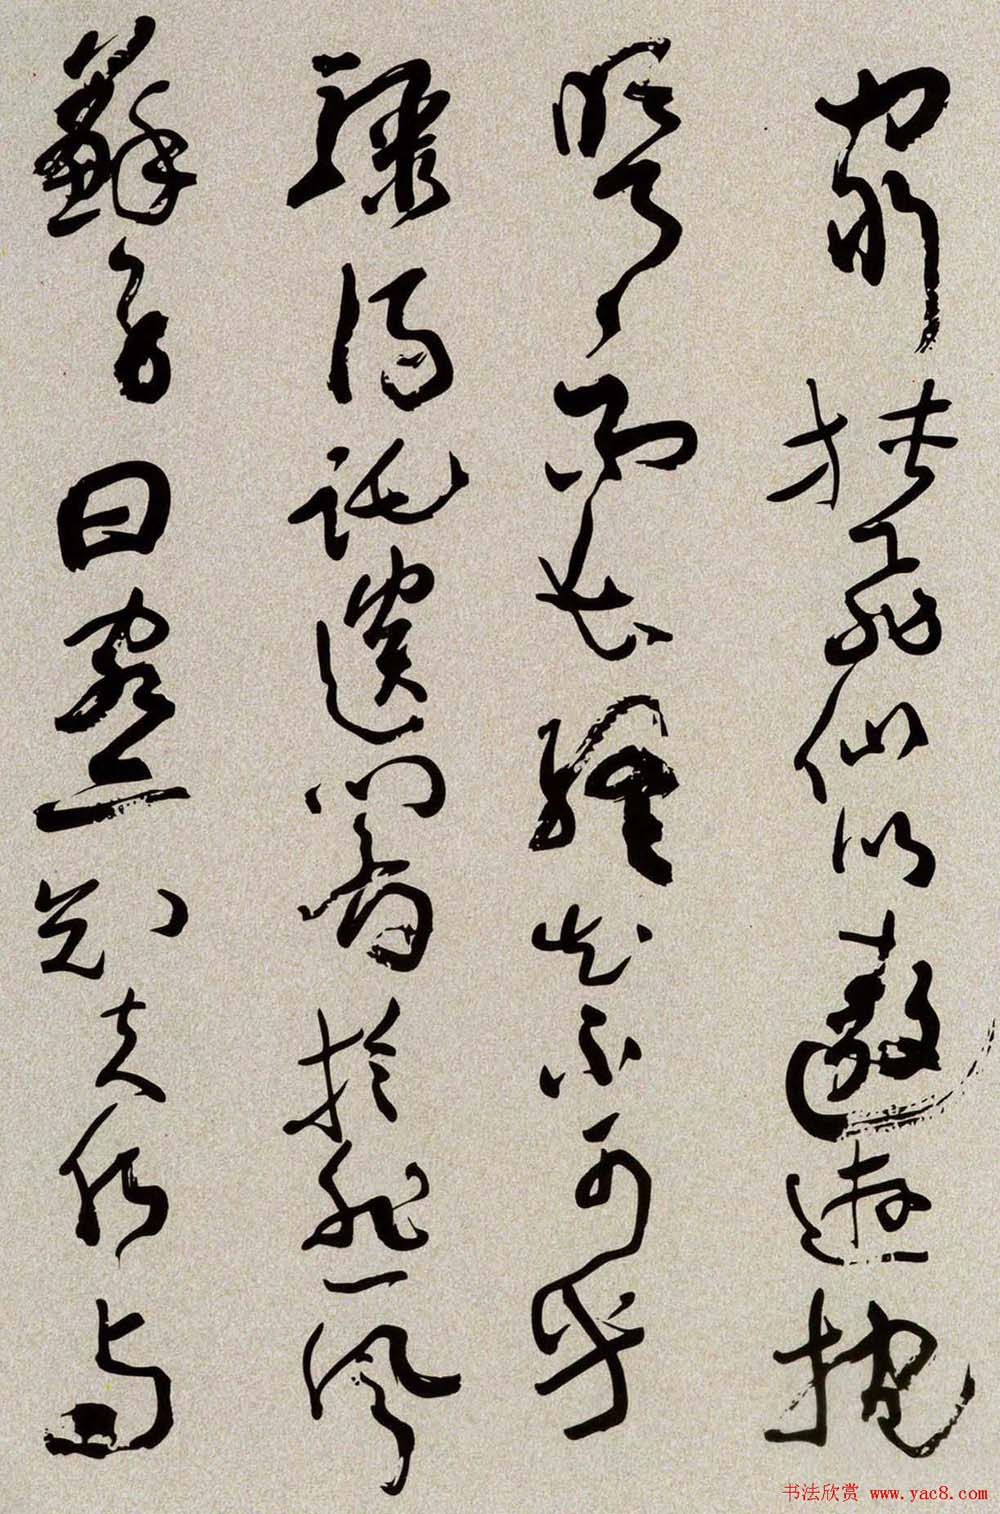 窮挾飛仙以遨遊抱
明月而長終知不可乎
驟得託遺響於悲風
蘇子曰客亦知夫水與
书法欣赏 www.yac8.com